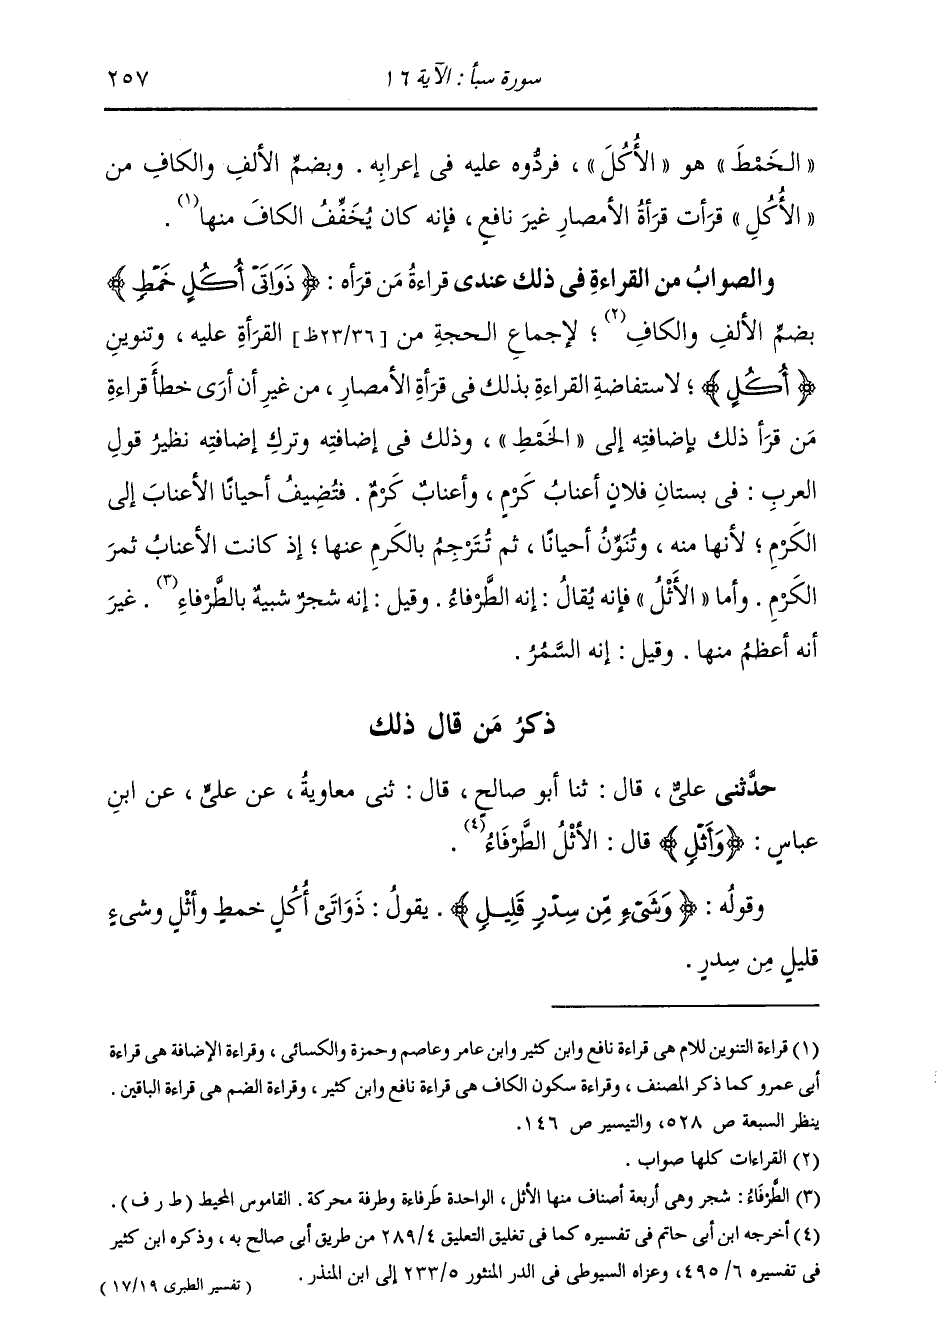 سورة سبأ : الآية ١٦ ٢٥٧
« الـخَمْطَ » هو « الأُكُلَ » ، فردُّوه عليه فى إعرابِه . وبضمِّ الألفِ والكافِ من
« الأُكُلِ » قرَأت قرَأةُ الأمصارِ غيرَ نافعٍ ، فإنه كان يُخَفِّفُ الكافَ منها(١) .
والصوابُ من القراءةِ فى ذلك عندى قراءةُ مَن قرَأه : ﴿ ذَوَاتَىْ أُكُلٍ خَمْطٍ ﴾
بضمِّ الألفِ والكافِ(٢) ؛ لإجماعِ الـحجةِ من [٢٣/٣٦ظ] القرَأةِ عليه ، وتنوينِ
﴿ أُكُلٍ ﴾ ؛ لاستفاضةِ القراءةِ بذلك فى قرَأةِ الأمصارِ ، من غيرِ أن أرَى خطأً قراءةِ
مَن قرَأ ذلك بإضافتِه إلى « الخَمْطِ » ، وذلك فى إضافتِه وتركِ إضافتِه نظيرُ قولِ
العربِ : فى بستانِ فلانٍ أعنابُ كَرْمٍ ، وأعنابٌ كَرْمٌ . فتُضِيفُ أحيانًا الأعنابَ إلى
الكَرْمِ ؛ لأنها منه ، وتُنَوِّنُ أحيانًا ، ثم تُتَرْجِمُ بالكَرمِ عنها ؛ إذ كانت الأعنابُ ثمرَ
الكَرْمِ . وأما « الأَثْلُ » فإنه يُقالُ : إنه الطَّرْفاءُ . وقيل : إنه شجرٌ شبيهٌ بالطَّرْفاءِ(٣) . غيرَ
أنه أعظمُ منها . وقيل : إنه السَّمُرُ .
ذكرُ مَن قال ذلك
حدَّثنى علىٌّ ، قال : ثنا أبو صالحٍ ، قال : ثنى معاويةُ ، عن علىٍّ ، عن ابنِ
عباسٍ : ﴿وَأَثْلٍ﴾ قال : الأَثْلُ الطَّرْفَاءُ(٤) .
وقولُه : ﴿ وَشَىْءٍ مِّن سِدْرٍ قَلِيلٍ ﴾ . يقولُ : ذَوَاتَىْ أُكُلٍ خمطٍ وأثْلٍ وشىءٍ
قليلٍ مِن سِدرٍ .
(١) قراءة التنوين للام هى قراءة نافع وابن كثير وابن عامر وعاصم وحمزة والكسائى ، وقراءة الإضافة هى قراءة
أبى عمرو كما ذكر المصنف ، وقراءة سكون الكاف هى قراءة نافع وابن كثير ، وقراءة الضم هى قراءة الباقين .
ينظر السبعة ص ٥٢٨، والتيسير ص ١٤٦.
(٢) القراءات كلها صواب .
(٣) الطَّرْفاءُ : شجر وهى أربعة أصناف منها الأثل ، الواحدة طَرفاءة وطرفة محركة . القاموس المحيط ( ط ر ف ) .
(٤) أخرجه ابن أبى حاتم فى تفسيره كما فى تغليق التعليق ٢٨٩/٤ من طريق أبى صالح به ، وذكره ابن كثير
فى تفسيره ٦/ ٤٩٥، وعزاه السيوطى فى الدر المنثور ٢٣٣/٥ إلى ابن المنذر .
( تفسير الطبرى ١٧/١٩ )